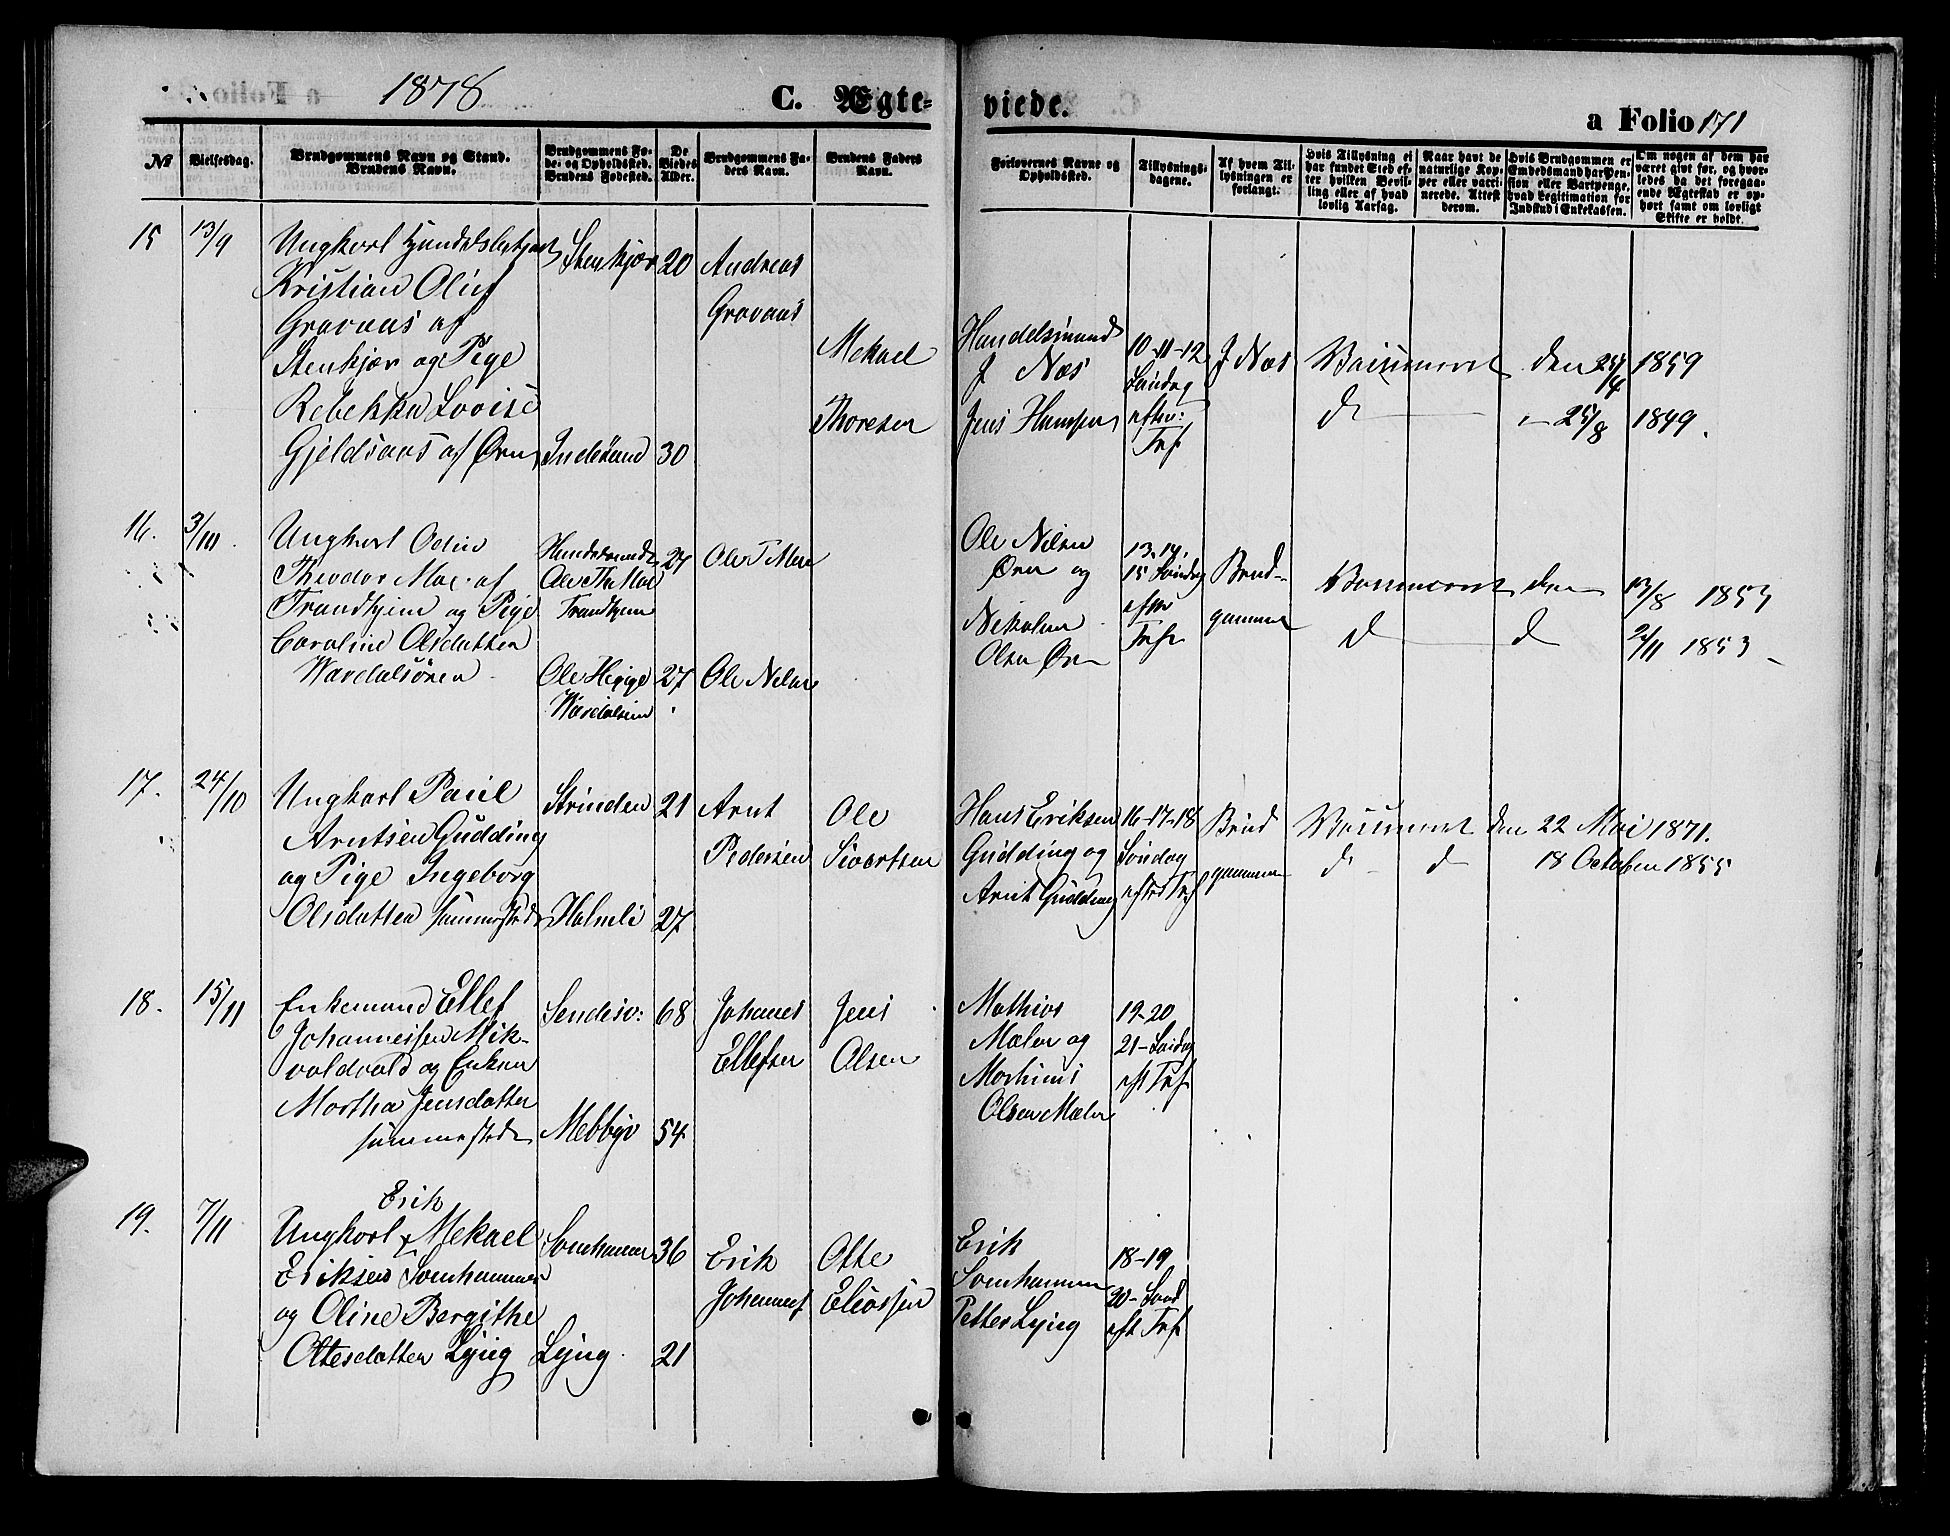 1878
C. Ægte-
viede.
a Folio 171
No
Vielsesdag.
Brudgommens Navn og Stand.
Brudens Navn.
Brudgommens Fø-
de- og Opholdssted.
Brudens Fødested.
De
Viedes
Alder.
Brudgommens Fa-
ders Navn.
Brudens Faders
Navn.
Forlovernes Navne og
Opholdssted.
Tillysnings-
dagene.
Af hvem Til-
lysningen er
forlangt.
Hvis Tillysning ei
har fundet Sted ef-
ter hvilken Bevil-
ling eller af hvad
lovlig Aarsag.
Naar havt de
naturlige Kop-
per eller vacci-
nerede. Attest
derom.
Hvis Brudgommen er
Embedsmand har Pen-
sion eller Vartpenge,
hvad Legitimation for
Indskud i Enkekassen.
Om nogen af dem har
været gift før, og hvor-
ledes da det foregaa-
ende Ægteskab er op-
hørt samt om lovligt
Skifte er holdt.
15
13/9
Ungkarl Handelsbetjent
Kristian Oluf
Gravaas af
Stenkjær og Pige
Rebekka Lovise
Gjeldsaas af Øren
Stenkjær
Inderøand
20
30
Andreas
Gravaas
Mekael
Thoresen
Handelsmand
J Næs
Jens Hansen
10-11-12
Søndag
efter:
Tref
J Næs
Vaccineret den 24/4 1859
d — " — 25/8 1849.
16.
3/10.
Ungkarl Odin
Theodor Moe af
Trondhjem og Pige
Caroline Olsdatter
Værdalsøren
Handelsmand
Ole Th Moe
Trondhjem
Ole Hegge
Værdalsøren
27
27
Ole T Moe
Ole Nelsen
Ole Nilsen
Øren og
Nikolai
Olsen Øren
13. 14.
15 Søndag
efter
Tref
Brud-
gommen
Vaccineret den 13/8 1853
d — d 2/11 1853
17.
24/10
Ungkarl Paul
Arntsen Gudding
og Pige Ingeborg
Olsdatter sammesteds
Strinden
Holmli
21
27
Arnt
Pedersen
Ole
Sivertsen
Hans Eriksen
Gudding og
Arnt Gudding
16-17-18
Søndag
efter Tref
Brud
gommen
Vaccineret den 22 Mai 1871.
d — d 18 October 1855
18.
15/11
Enkemand Ellef
Johannessen Mik-
voldvald og Enken
Martha Jensdatter
sammesteds
Mebbyv
68
54
Johanes
Ellefsen
Jens
Olsen
Mathias
Mælen og
Martinus
Olsen Mælen
19-20
21-Søndag
eft Tref
19.
7/11
Erik
Ungkarl Mekael
Eriksen Svenhammer
og Oline Bergithe
Ottesdatter Lyng
Svenhammer
Lyng
36
21
Erik
Johannes
Otte
Eliassen
Erik
Svenhammer
Petter Lyng
18-19
20-Sønd
eft Tref